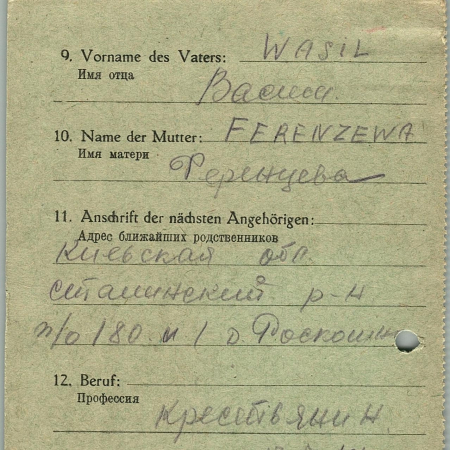 9. Vorname des Vaters: WASIL
Имя отца
Васил
10. Name der Mutter: FERENZEWA
Имя матери
Ференцева
11. Anschrift der nächsten Angehörigen:
Адрес ближайших родственников
Киевская обл.
Сталинский р-н
п/о 180 д.
12. Beruf:
Профессия
Крестьянин